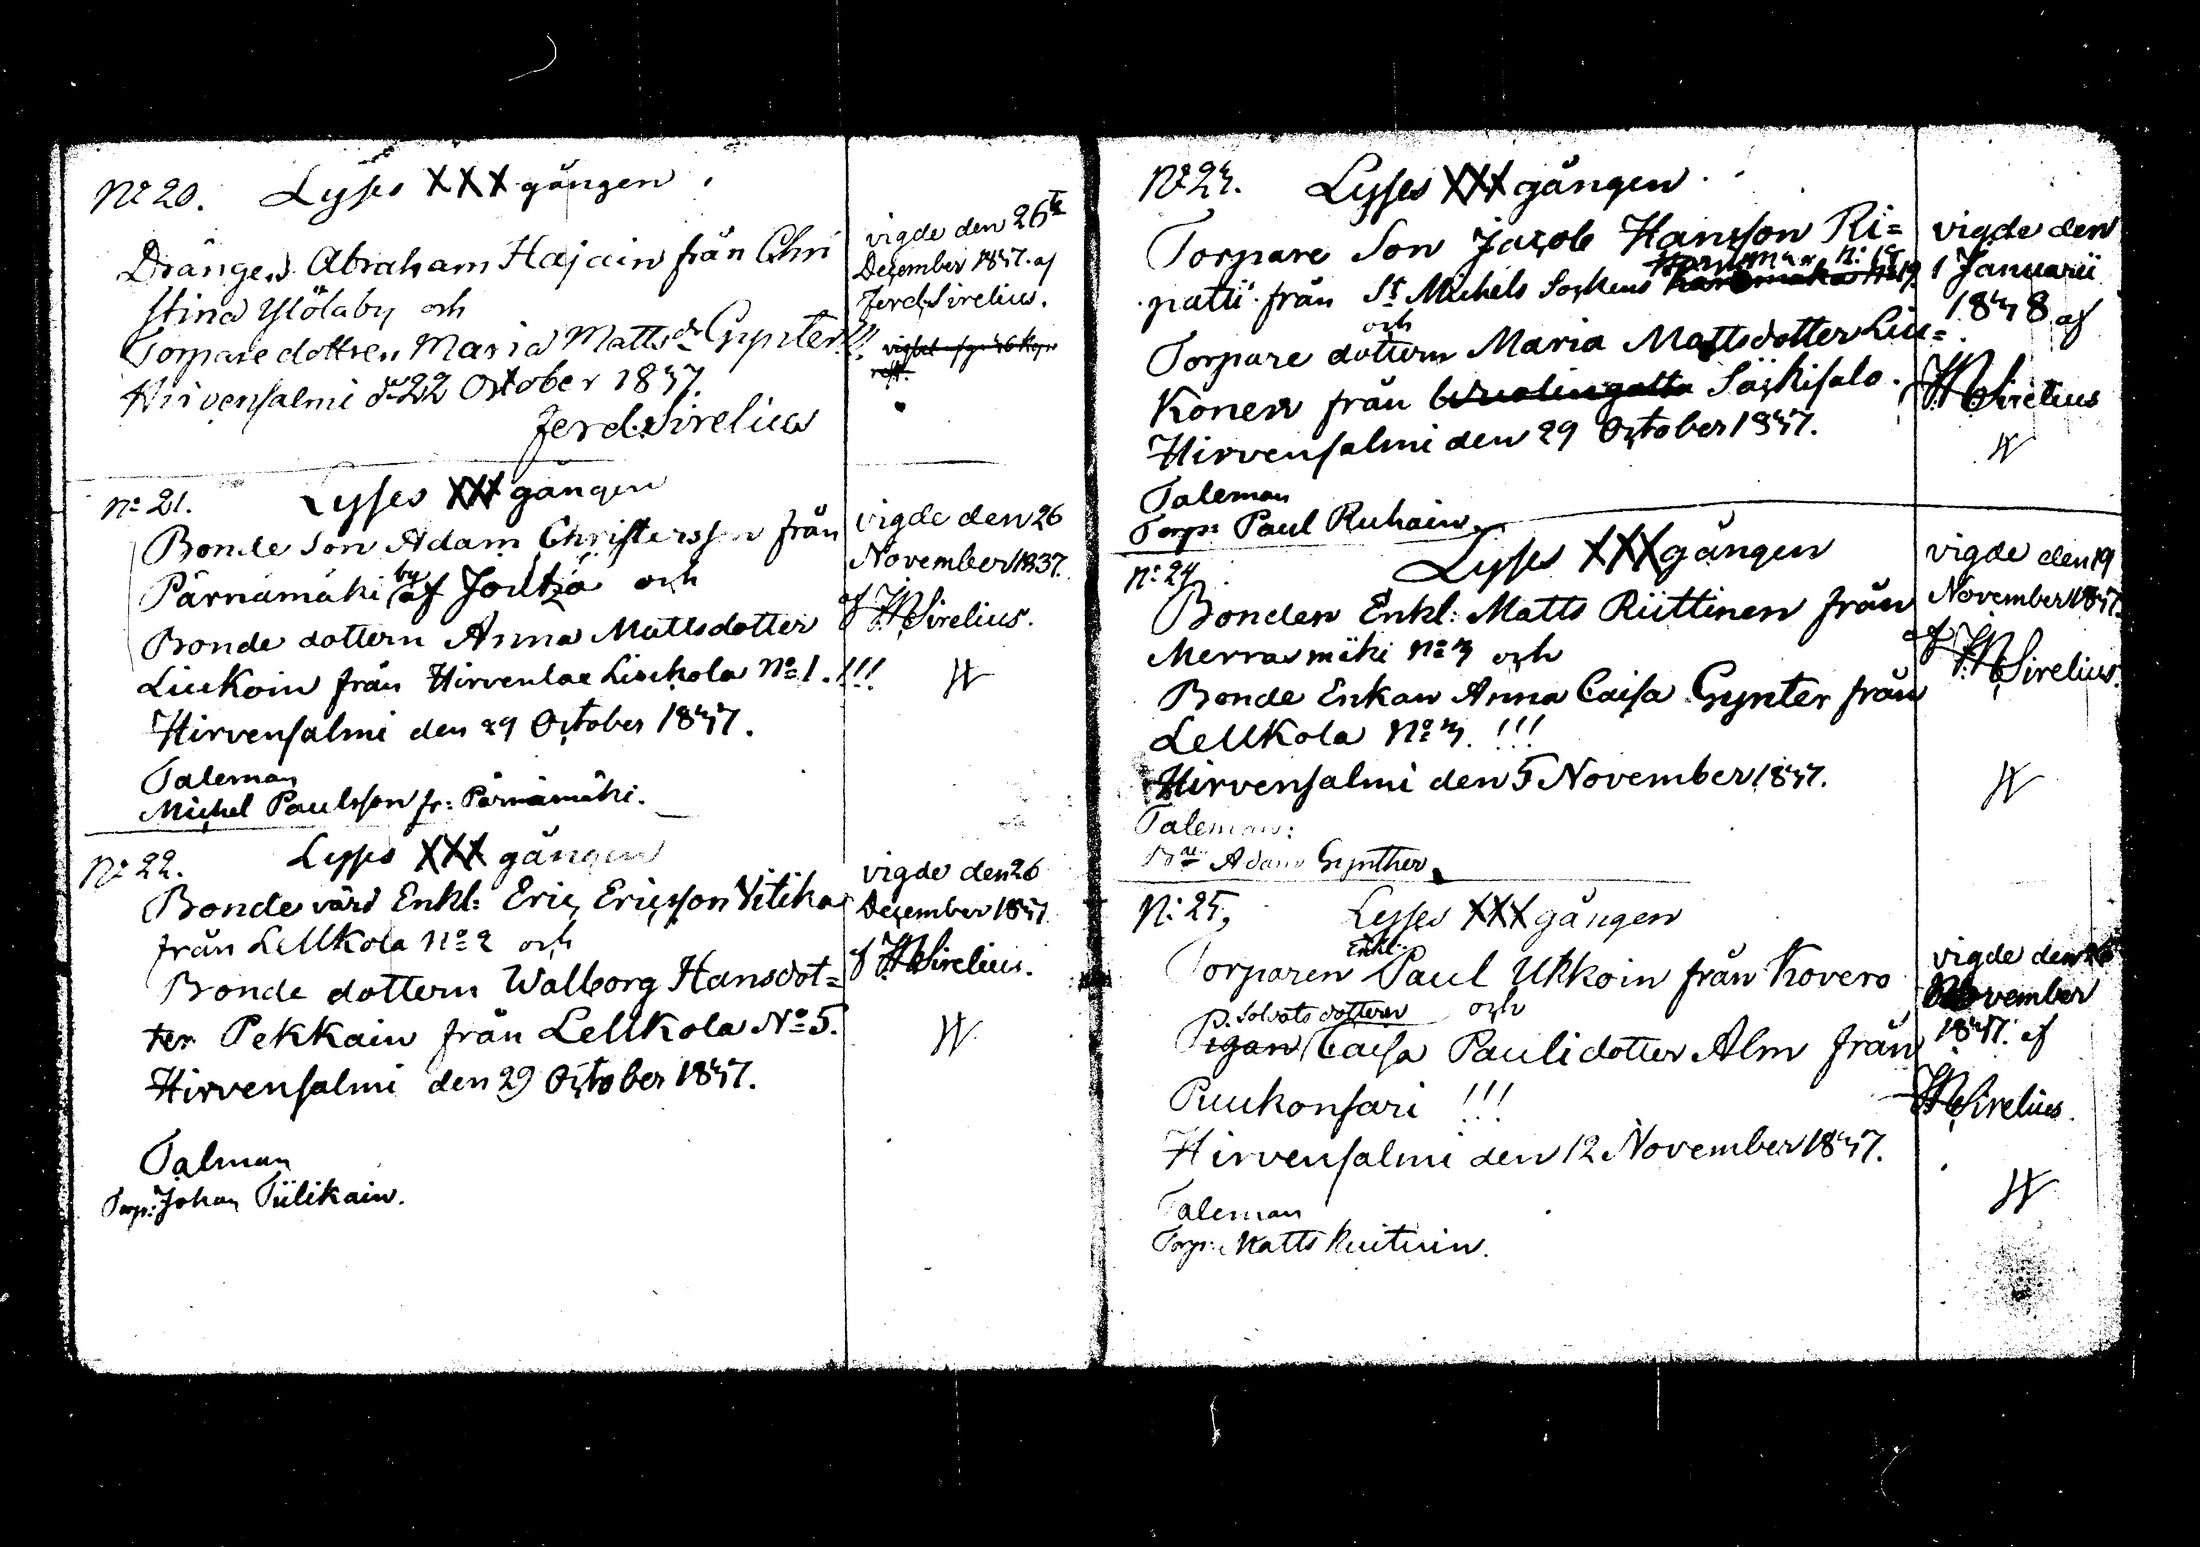 No 20. Lyses XXX gången
Drängen Abraham Hajain från Chri
stina Ylöläby och
Torpare dottren Maria Matts dr Gynter !!!
Hirvensalmi d: 22 October 1847.
Ferd. Sirelius
vigde den 26te
December 1847. af
Ferd. Sirelius.
No 21. Lyses XXX gången
Bonde Son Adam Christersson från
Pärnämäki by af Joutza och
Bonde dottern Anna Mattsdotter
Liukoin från Hirvenlax Liukola No 1. !!!
Hirvensalmi den 29 October 1847.
Taleman
Michel Paulsson fr: Pärnämäki.
vigde den 26
November 1837.
af Sirelius.
No 22. Lyses XXX gången
Bonde värd Enkl: Eric Ericsson Vitika
från Lellkola No 2 och
Bonde dottern Walborg Hansdot=
ter Pekkain från Lellkola No 5.
Hirvensalmi den 29 October 1847.
Talman
Torp: Johan Tiilikain.
vigde den 26
December 1847
af Sirelius.
No 23. Lyses XXX gången
Torpare Son Jacob Hansson Ri=
patti från St Michels Sockens No 19
och
Torpare dottern Maria Mattsdotter Liu=
Konen från Säkisalo.
Hirvensalmi den 29 October 1847.
Taleman
Torp: Paul Ruhain
vigde den
1 Januarii
1848 af
Sirelius
No 24 Lyses XXX gången
Bonden Enkl: Matts Riittinen från
Merrasmäki No 3 och
Bonde Enkan Anna Caisa Gynter från
Lellkola No 3. !!!
Hirvensalmi den 5 November 1847.
Taleman:
Adam Gynther
vigde den 19
November 1847.
af Sirelius.
No 25, Lyses XXX gången
Enkl:
Torparen Paul Ukkoin från Kovero
Soldats dottern och
Pigan Caisa Paulidotter Alm från
Puukonsari !!!
Hirvensalmi den 12 November 1847.
Taleman
Torp: Matts Ruituin.
vigde den 26
November
1847. af
Sirelius.